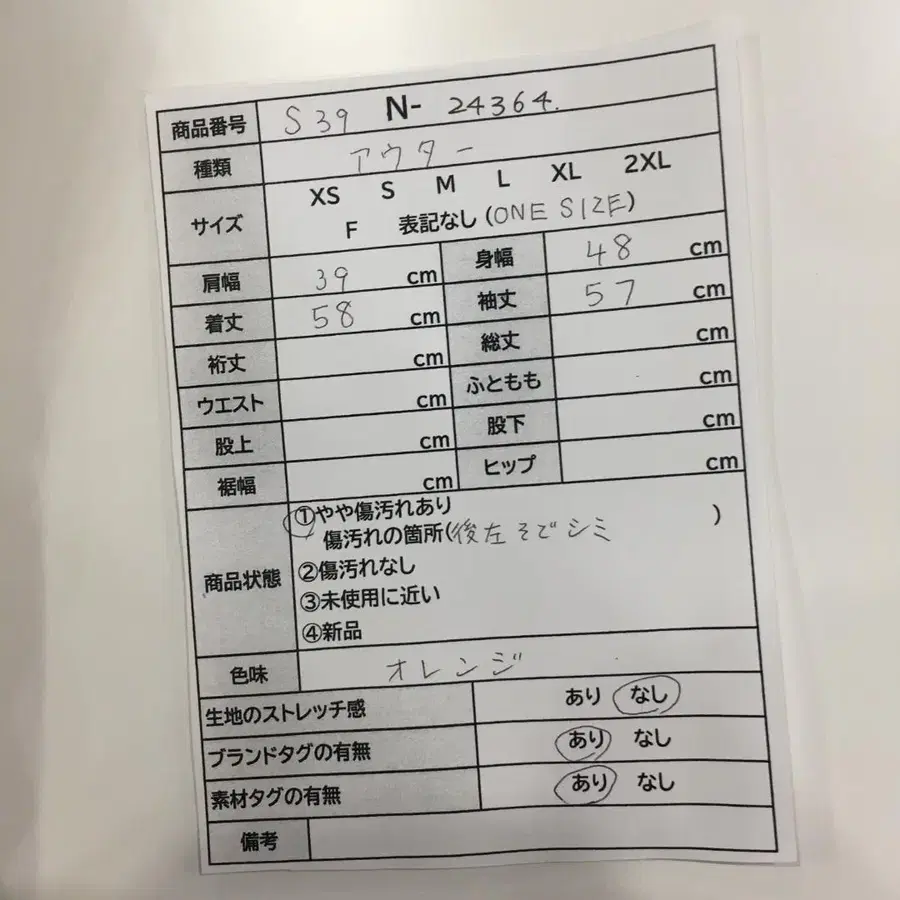 商品番号 S39 N- 24364.
種類 アウター
サイズ XS S M L XL 2XL
F 表記なし (ONE SIZE)
肩幅 39 cm 身幅 48 cm
着丈 58 cm 袖丈 57 cm
裄丈 cm 総丈 cm
ウエスト cm ふともも cm
股上 cm 股下 cm
裾幅 cm ヒップ cm
商品状態 ①やや傷汚れあり
傷汚れの箇所(後左そでシミ )
②傷汚れなし
③未使用に近い
④新品
色味 オレンジ
生地のストレッチ感 あり なし
ブランドタグの有無 あり なし
素材タグの有無 あり なし
備考